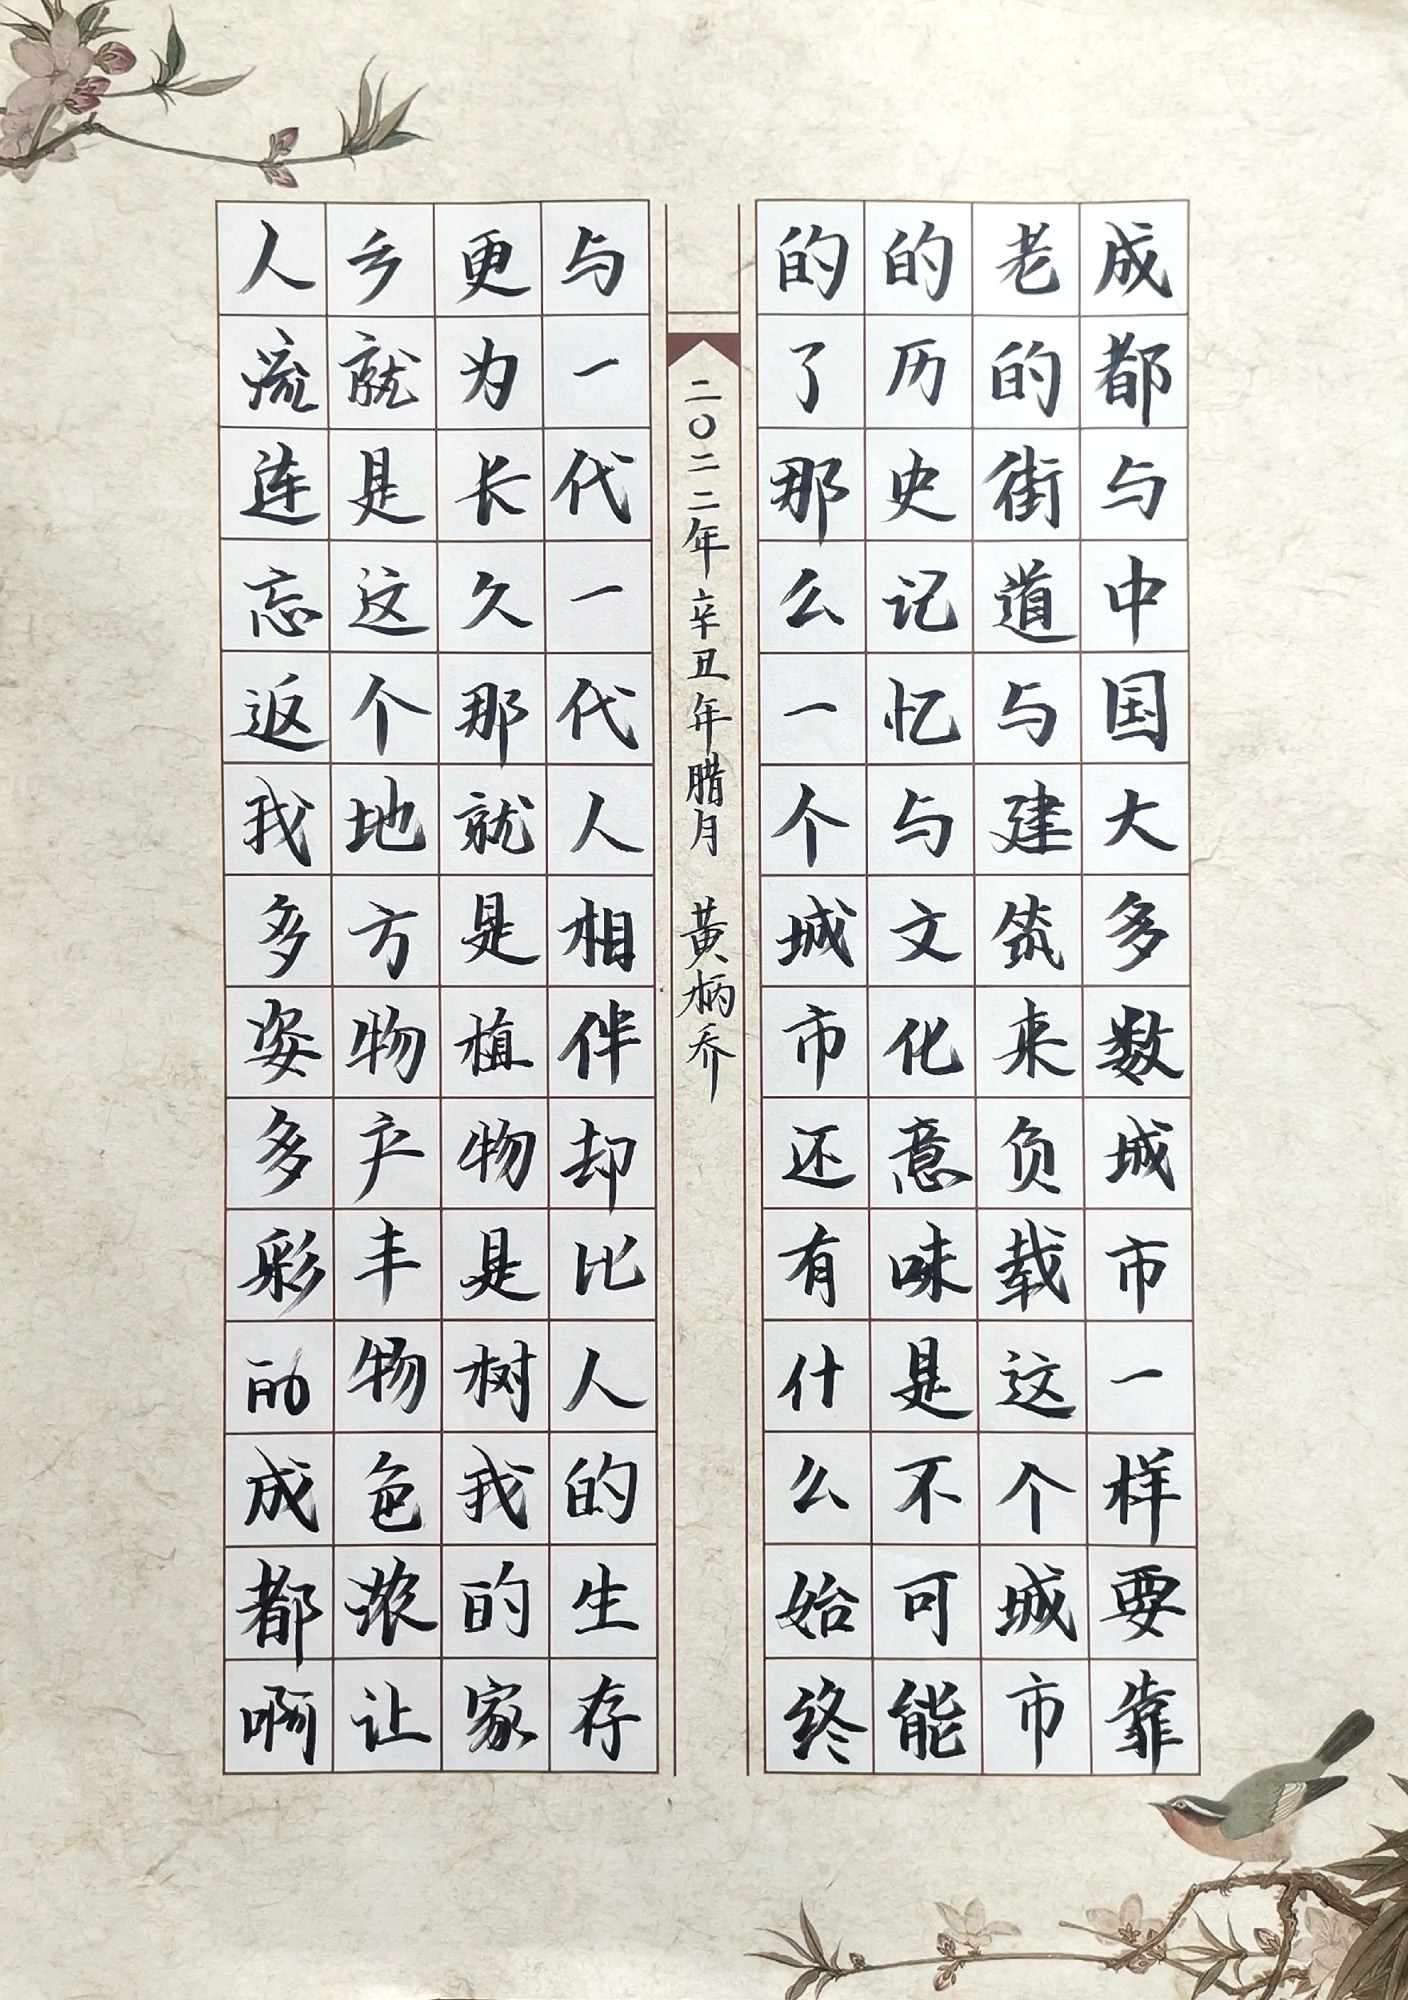 成都与中国大多数城市一样要靠
老的街道与建筑来负载这个城市
的历史记忆与文化意味是不可能
的了那么一个城市还有什么始终
二〇二二年辛丑年腊月 黄柄乔
与一代一代人相伴却比人的生存
更为长久那就是植物是树我的家
乡就是这个地方物产丰物色浓让
人流连忘返我多姿多彩的成都啊